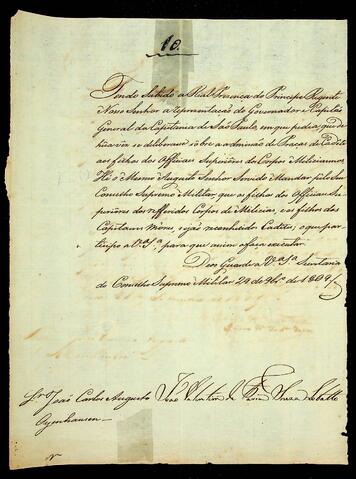 10.
Tendo Subido a Real Prezença do Principe Regente
Nosso Senhor a reprezentação do Governador e Capitão
General da Capitania de São Paulo, em que pedia, que de
liberado sobre a admissão de Praças de Cadete
aos filhos dos Officiaes Superiores dos Corpos Milicianos
O Mesmo Augusto Senhor Servido Mandar pelo Seu
Conselho Supremo Militar, que os filhos dos Officiaes Su-
periores dos refferidos Corpos de Milicias, e os filhos dos
Capitaens móres sejão reconhecidos Cadetes, o que par-
ticipo a V.S.ª para que assim o faça executar.
Deos Guarde a V.S.ª Secretaria
do Conselho Supremo Militar 29 de 9br.º de 1809
Sr. João Carlos Augusto
Oyenhausen
João Valentim de Faria Souza Lobatto